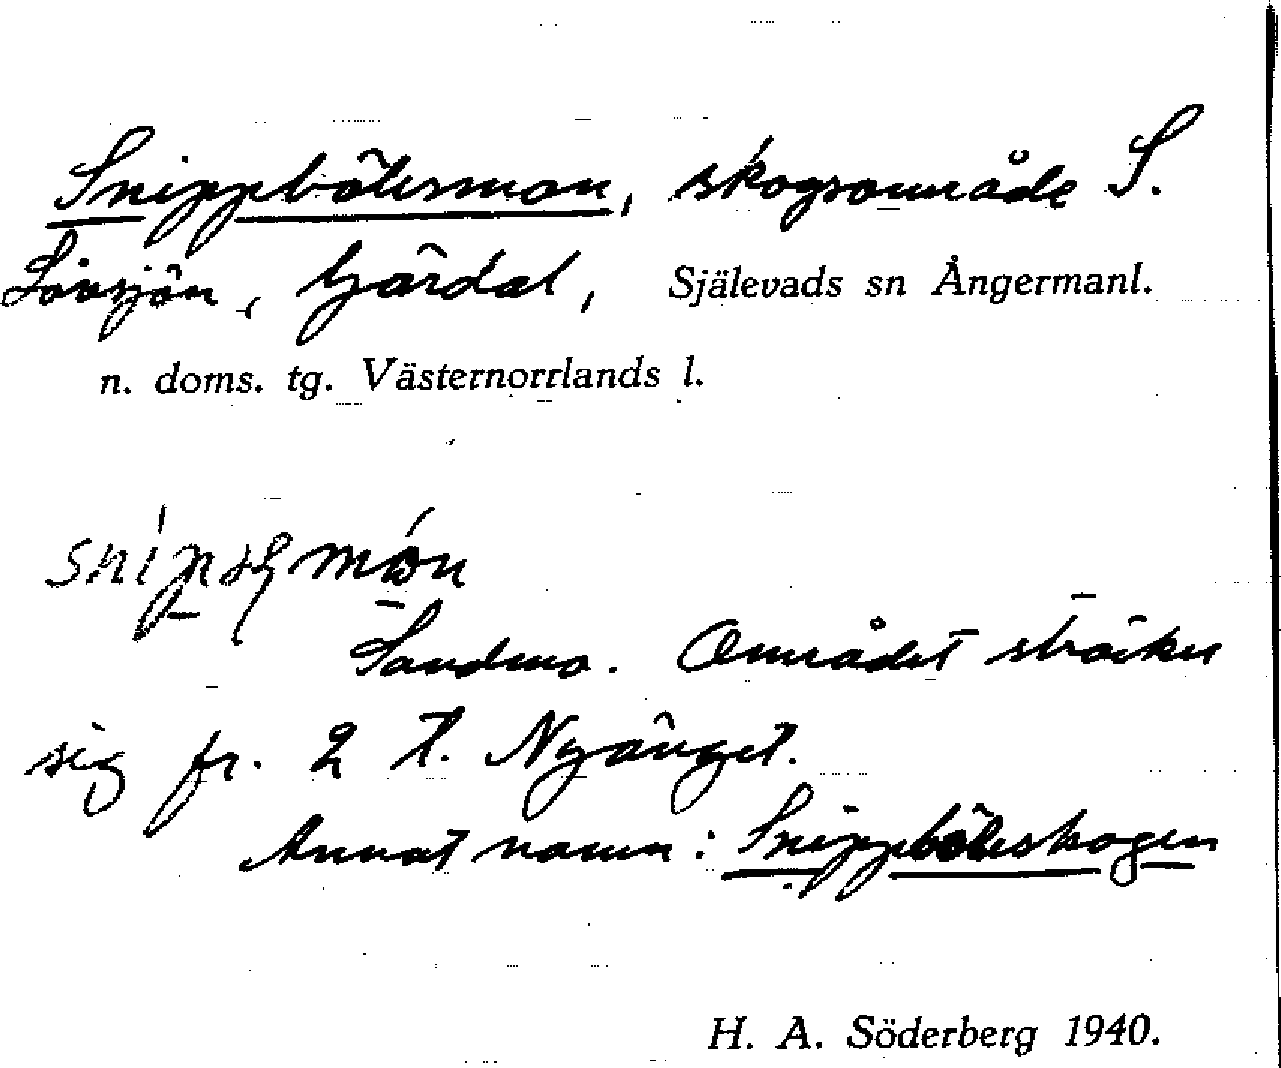 Snippbölesmon, skogsområde S.
Lövsjön, Gärdal, Själevads sn Ångermanl.
n. doms. tg. Västernorrlands l.
Sandmo. Området sträcker
sig fr. 2 t. Nyänget.
Annat namn: Snippbölesskogen
H. A. Söderberg 1940.